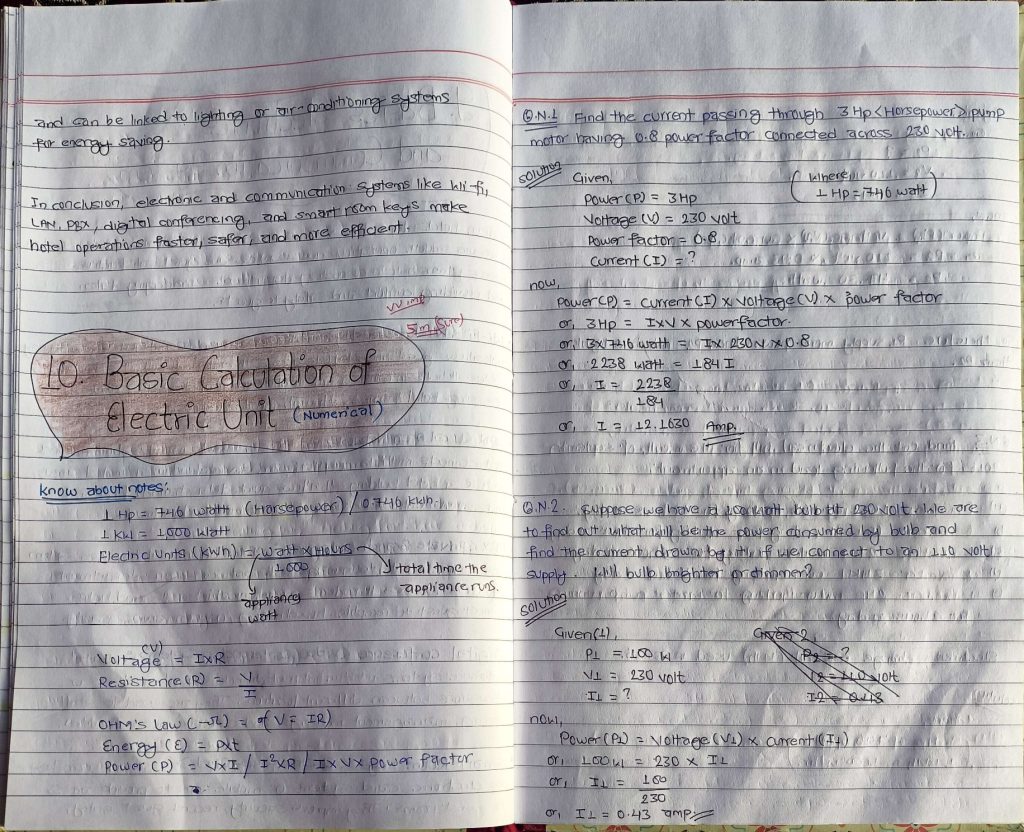 and can be linked to lighting or air-conditioning systems
for energy saving.
In conclusion, electronic and communication systems like Wi-fi,
LAN, PBX, digital conferencing, and smart room keys make
hotel operations faster, safer, and more efficient.
VV.imp
5m (Sure)
10. Basic Calculation of
Electric Unit (Numerical)
Know about notes:
1 Hp = 746 watt (Horsepower) / 0.746 kwh.
1 kW = 1000 Watt
Electric Units (kWh) = Watt x Hours
1000
total time the
appliance runs.
appliance
watt
(V)
Voltage = IxR
Resistance (R) = V
I
OHM's Law (Ω) = of V = IR)
Energy (E) = Pxt
Power (P) = VxI / I²xR / IxVx Power factor
Q.N.1 Find the current passing through 3 Hp <Horsepower> pump
motor having 0.8 power factor connected across 230 volt.
solution
Given,
(Where,
1 Hp = 746 watt)
Power (P) = 3 Hp
Voltage (V) = 230 volt
Power factor = 0.8
Current (I) = ?
now,
Power (P) = Current (I) x Voltage (V) x power factor
or, 3Hp = IxV x powerfactor.
or, 3x746 watt = Ix 230V x0.8
or, 2238 watt = 184 I
or, I = 2238
184
or, I = 12.1630 Amp.
Q.N.2. Suppose we have a 100 watt bulb at 230 volt. We are
to find out what will be the power consumed by bulb and
find the current drawn by it, if we connect to an 110 volt
supply. Will bulb brighter or dimmer?
solution
Given (1),
P1 = 100 W
V1 = 230 volt
I1 = ?
Given 2,
P2 = ?
V2 = 110 volt
I2 = 0.43
now,
Power (P1) = Voltage (V1) x Current (I1)
or, 100 W = 230 x I1
or, I1 = 100
230
or, I1 = 0.43 amp